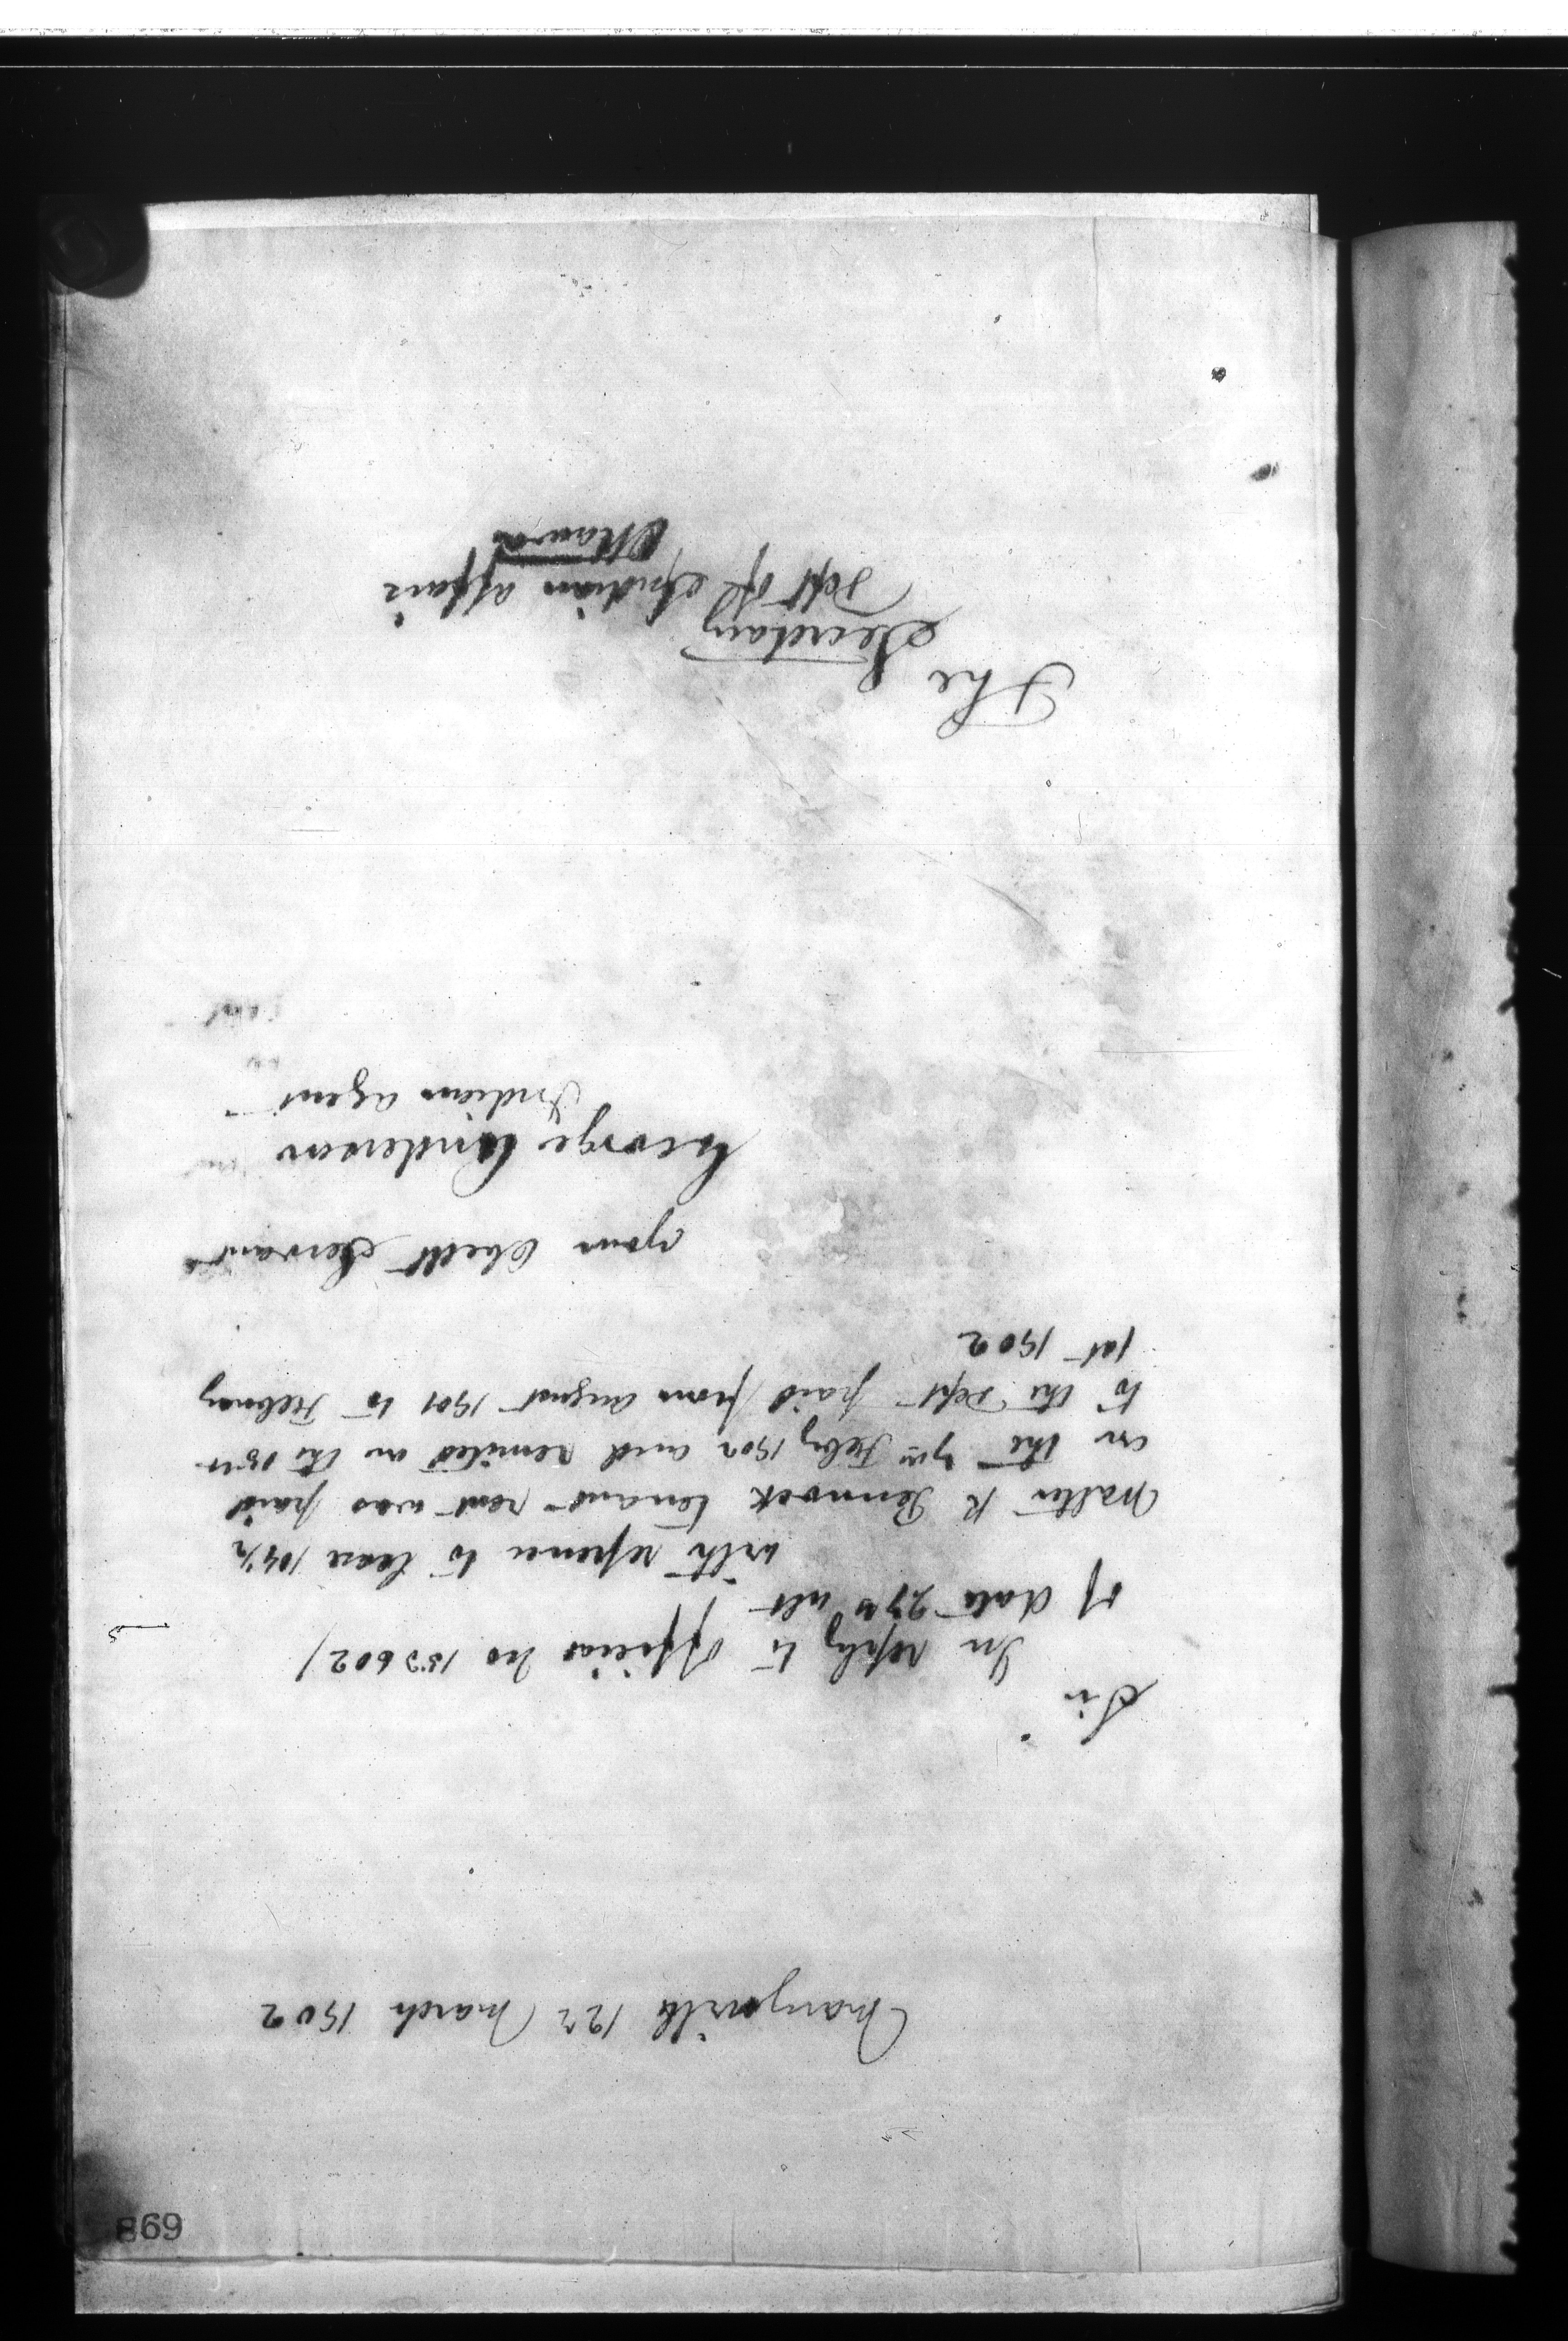 869
Marysville 12th March 1902
Sir
In reply to official No 153602
of date 27th ult
with refrence to lease 104½
Walter R Pennock tenant rent was paid
on the 7th Feby 1902 and remited on the 15th
to the Dept paid from august 1901 to Febuary
1st 1902
your Obedt Servant
George Anderson
Indian agent
The Secretary
Dept of Indian affairs
Ottawa